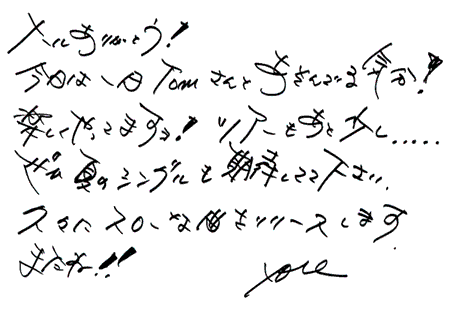 メールありがとう!
今日は一日Tomさんと
楽しくやってますョ! ツアーもあと少し.....
ぜひ夏のシングルも期待してて下さい.
スゴイな曲をリリースします.
またね!!